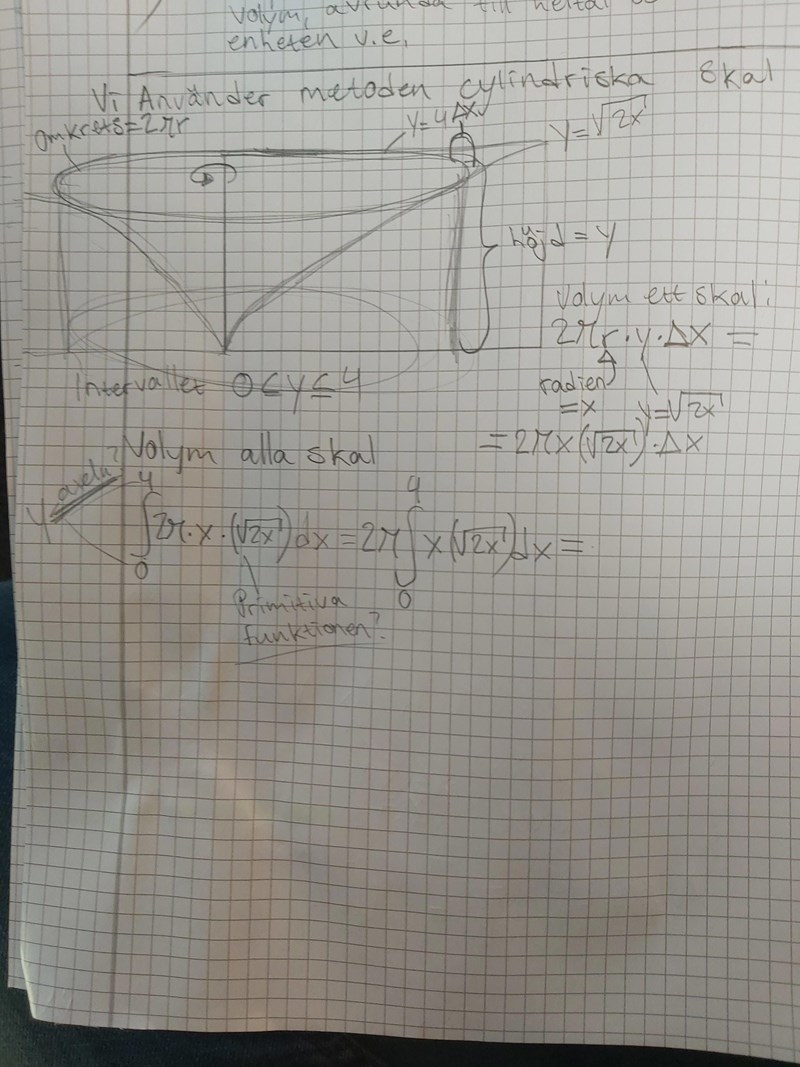 volym, avrunda till heltal
enheten v.e.
Vi Använder metoden cylindriska skal
Omkrets=2πr
y=4
Δx
y=√2x
höjd = y
Volym ett skal:
2πr·y·Δx =
radien
=x
y=√2x
Intervallet 0≤y≤4
=2πx(√2x)·Δx
Volym alla skal
y
4
∫2π·x·(√2x)dx=2π∫x(√2x)dx=
0
4
0
Primitiva
funktionen?